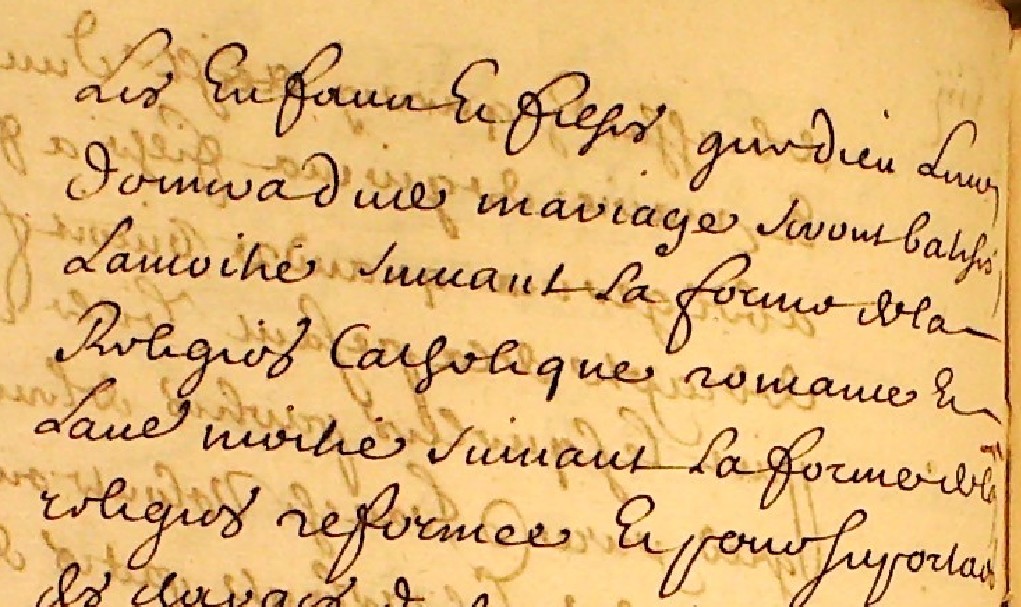 Les Enfans Et filhes que dieu Leur
donnera dud mariage seront batises
Lamoitie suiuant La forme dela
Religion Catholique romaine Et
Laue moitie suiuant La forme dela
religion reformee Et pour suportas
des charges d